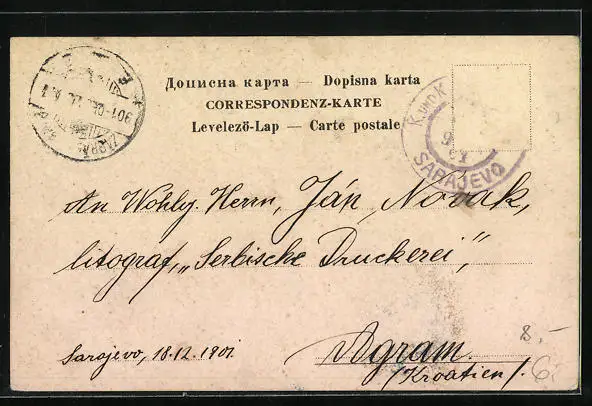 Дописна карта — Dopisna karta
CORRESPONDENZ-KARTE
Levelező-Lap — Carte postale
K. UND K.
SARAJEVO
An Wohlg. Herrn, Ján Novak,
litograf, „Serbische Druckerei",
Sarajevo, 18.12.1901.
Agram
(Kroatien).
8.-